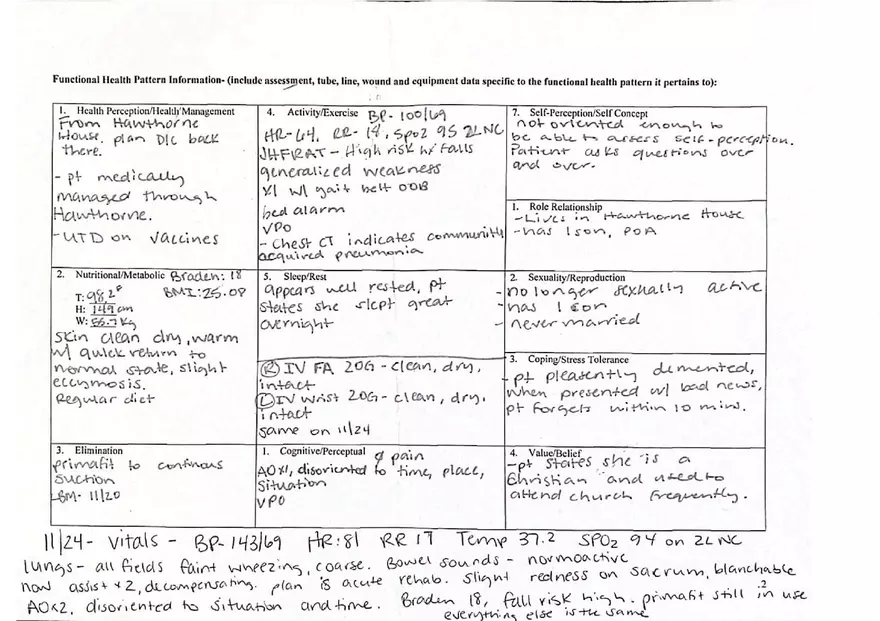 Functional Health Pattern Information- (include assessment, tube, line, wound and equipment data specific to the functional health pattern it pertains to):
1. Health Perception/Health Management
From Hawthorne
House. plan D/C back
there.
- pt medically
managed through
Hawthorne.
- UTD on vaccines
4. Activity/Exercise BP- 100/69
HR-64, RR- 18, SpO2 95 2L NC
JHFRAT - High risk w/ falls
generalized weakness
x1 w/ gait belt OOB
bed alarm
VPO
- Chest CT indicates community
acquired pneumonia
7. Self-Perception/Self Concept
not oriented enough to
be able to assess self-perception.
Patient asks questions over
and over.
1. Role Relationship
- Lives in Hawthorne House
- has 1 son, POA
2. Nutritional/Metabolic Braden: 18
T: 98.2° BMI: 25.08
H: 149 cm
W: 55.7 kg
Skin clean dry, warm
w/ quick return to
normal state, slight
eccymosis.
Regular diet
5. Sleep/Rest
appears well rested, pt
states she slept great
overnight
(R) IV FA 20G - clean, dry,
intact
(L) IV Wrist 20G - clean, dry,
intact
same on 11/24
2. Sexuality/Reproduction
- no longer sexually active
- has 1 son
- never married
3. Coping/Stress Tolerance
- pt pleasently demented,
when presented w/ bad news,
pt forgets within 10 mins.
3. Elimination
primafit to continous
suction
BM- 11/20
1. Cognitive/Perceptual pain
AOX1, disoriented to time, place,
situation
VPO
4. Value/Belief
- pt states she is a
Christian and used to
attend church frequently.
11/24- vitals - BP-143/69 HR:81 RR 17 Temp 37.2 SPO2 94 on 2L NC
lungs- all fields faint wheezing, coarse. Bowel sounds - normoactive
now assist x2, decompensating. plan is acute rehab. slight redness on sacrum, blanchable
AOx2, disoriented to situation and time. Braden 18, fall risk high. primafit still in use
everything else is the same